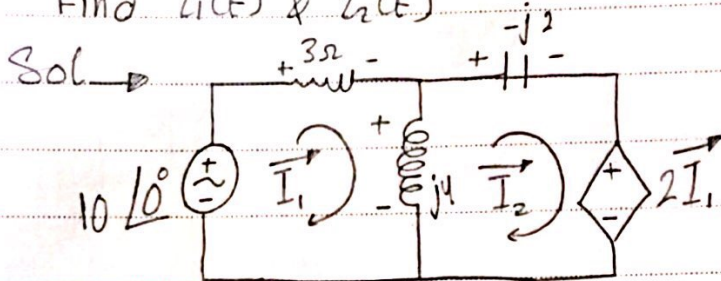 Find i₁(t) & i₂(t)
Sol
+ 3Ω -
+ -j2 -
10∠0°
+
-
I₁
+
-
j4
I₂
+
-
2I₁